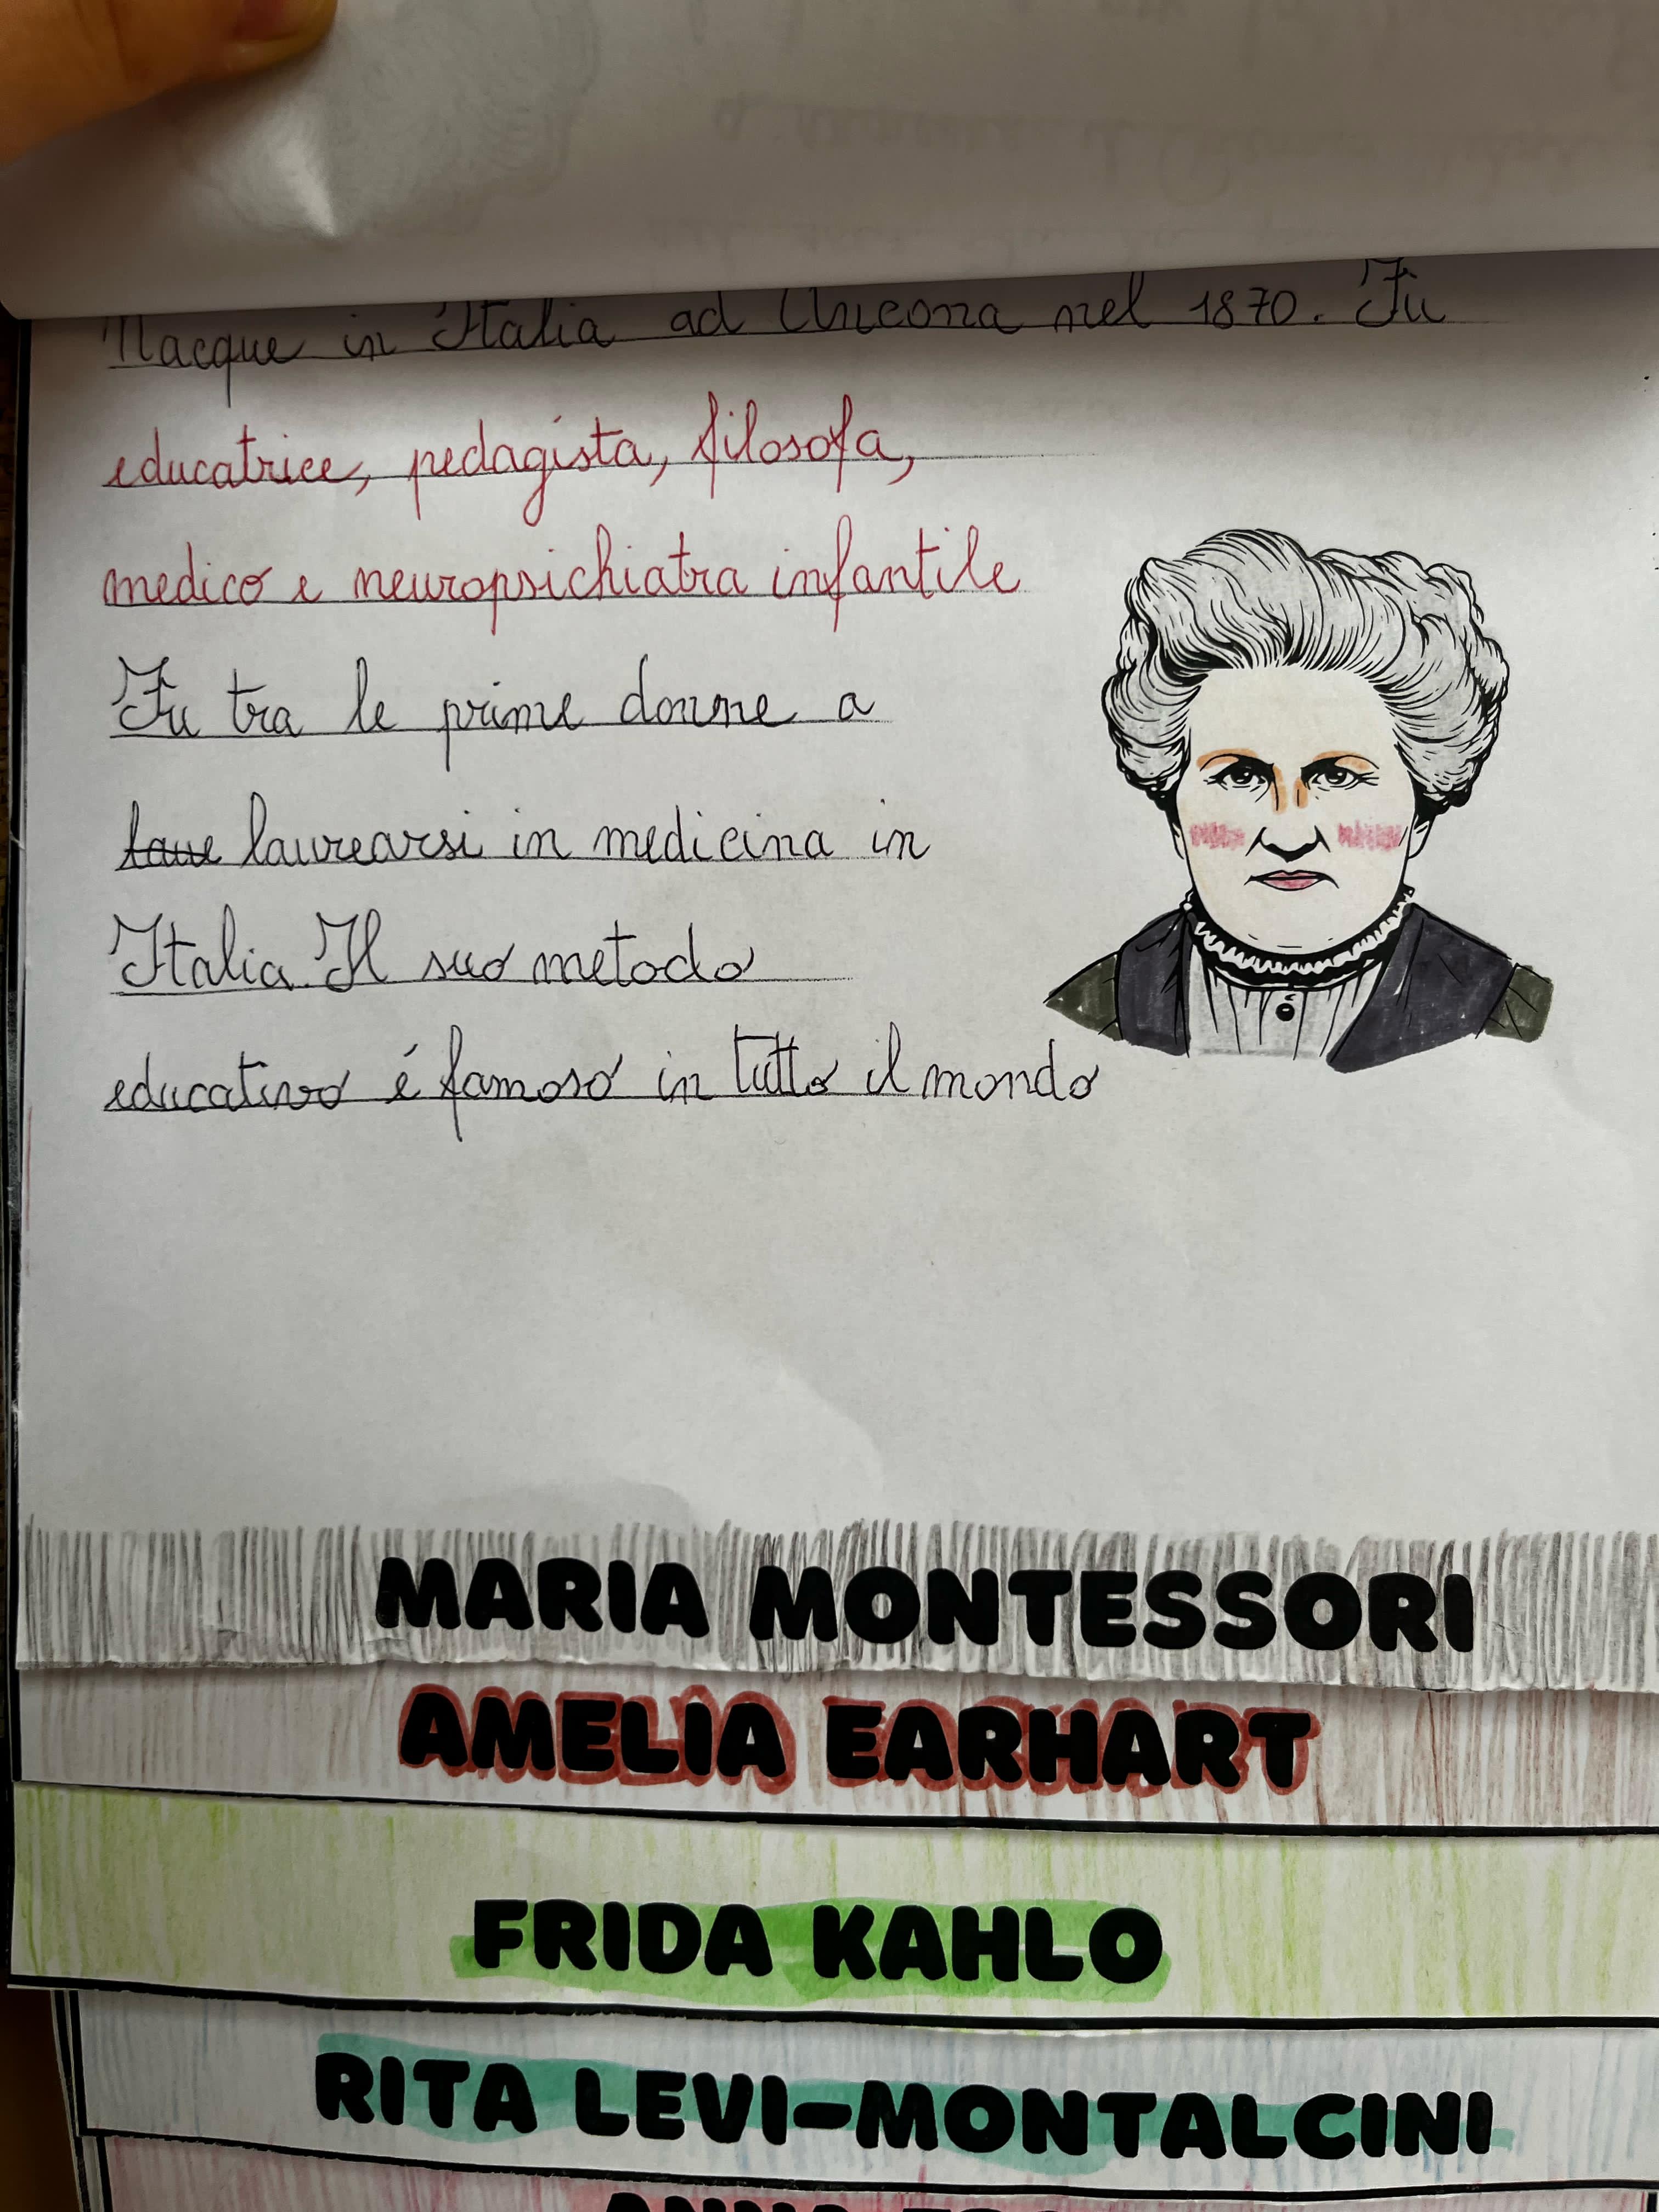 Nacque in Italia ad Ancona nel 1870. Fu
educatrice, pedagista, filosofa,
medico e neuropsichiatra infantile
Fu tra le prime donne a
laurearsi in medicina in
Italia. Il suo metodo
educativo é famoso in tutto il mondo
MARIA MONTESSORI
AMELIA EARHART
FRIDA KAHLO
RITA LEVI-MONTALCINI
ANNA